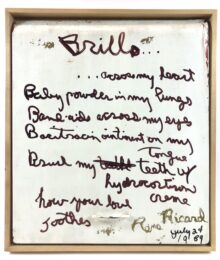 Brillo...
...across my heart
Baby powder in my lungs
Band-aids across my eyes
Bacitracin ointment on my
tongue
Brush my teeth teeth w/
hydrocortisone
creme
how your love
soothes
Rene Ricard
July 24
1989